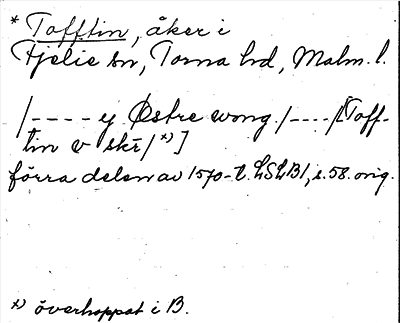 * Tofftin, åker i
Fjelie sn, Torna hd, Malm. l.
/---- y Østre wong. /----/[Toff-
tin v skr/*)]
förra delen av 1570-t. LSLB1, s. 58. orig.
*) överhoppat i B.